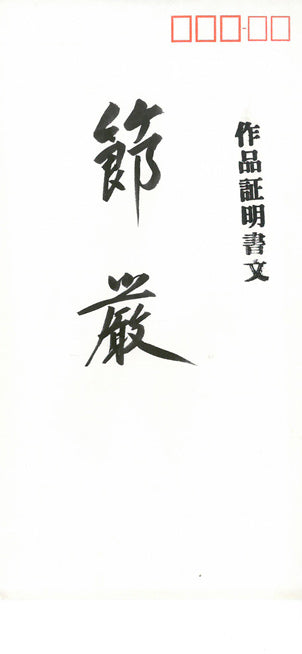 作品証明書文
節
厳